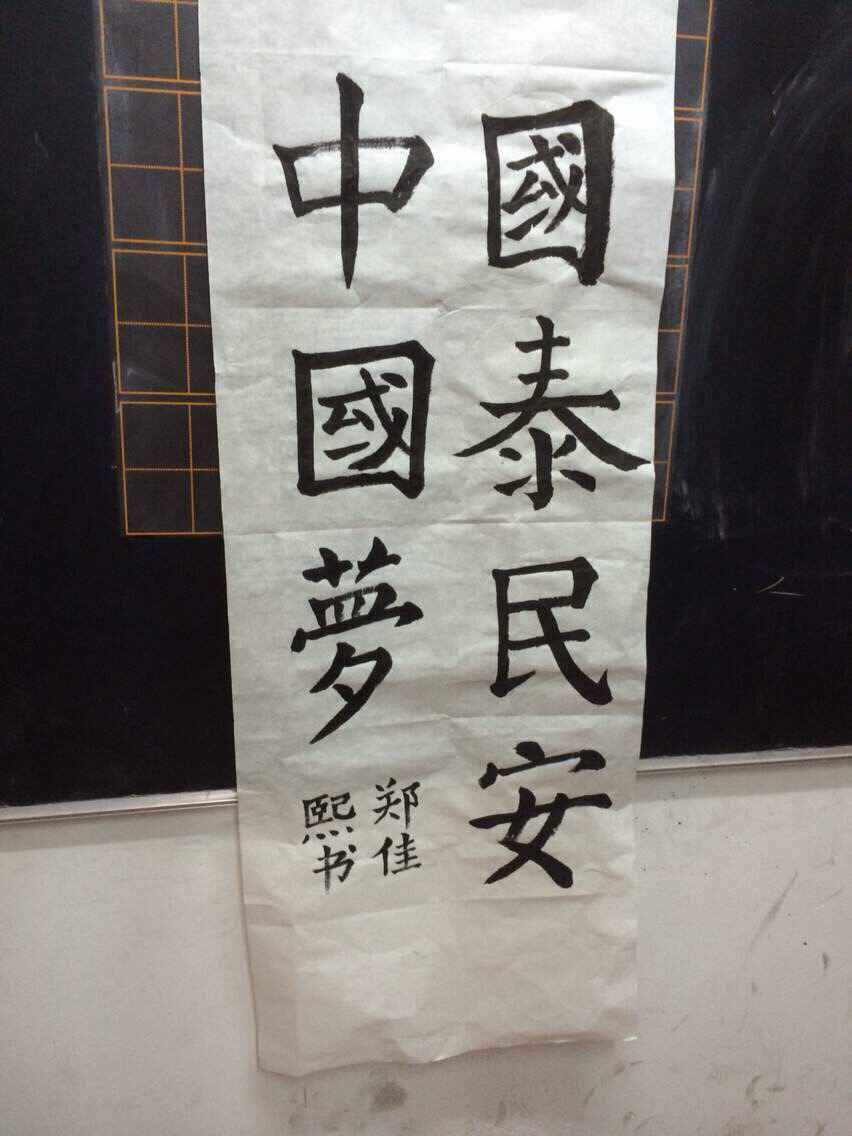 國泰民安
中國夢
郑佳
熙书